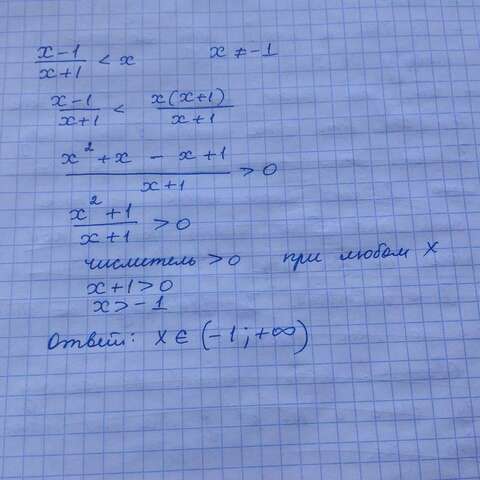 x-1/x+1 < x x ≠ -1
x-1/x+1 < x(x+1)/x+1
x² + x - x + 1/x+1 > 0
x² + 1/x+1 > 0
числитель > 0 при любом x
x+1 > 0
x > -1
Ответ: x ∈ (-1; +∞)